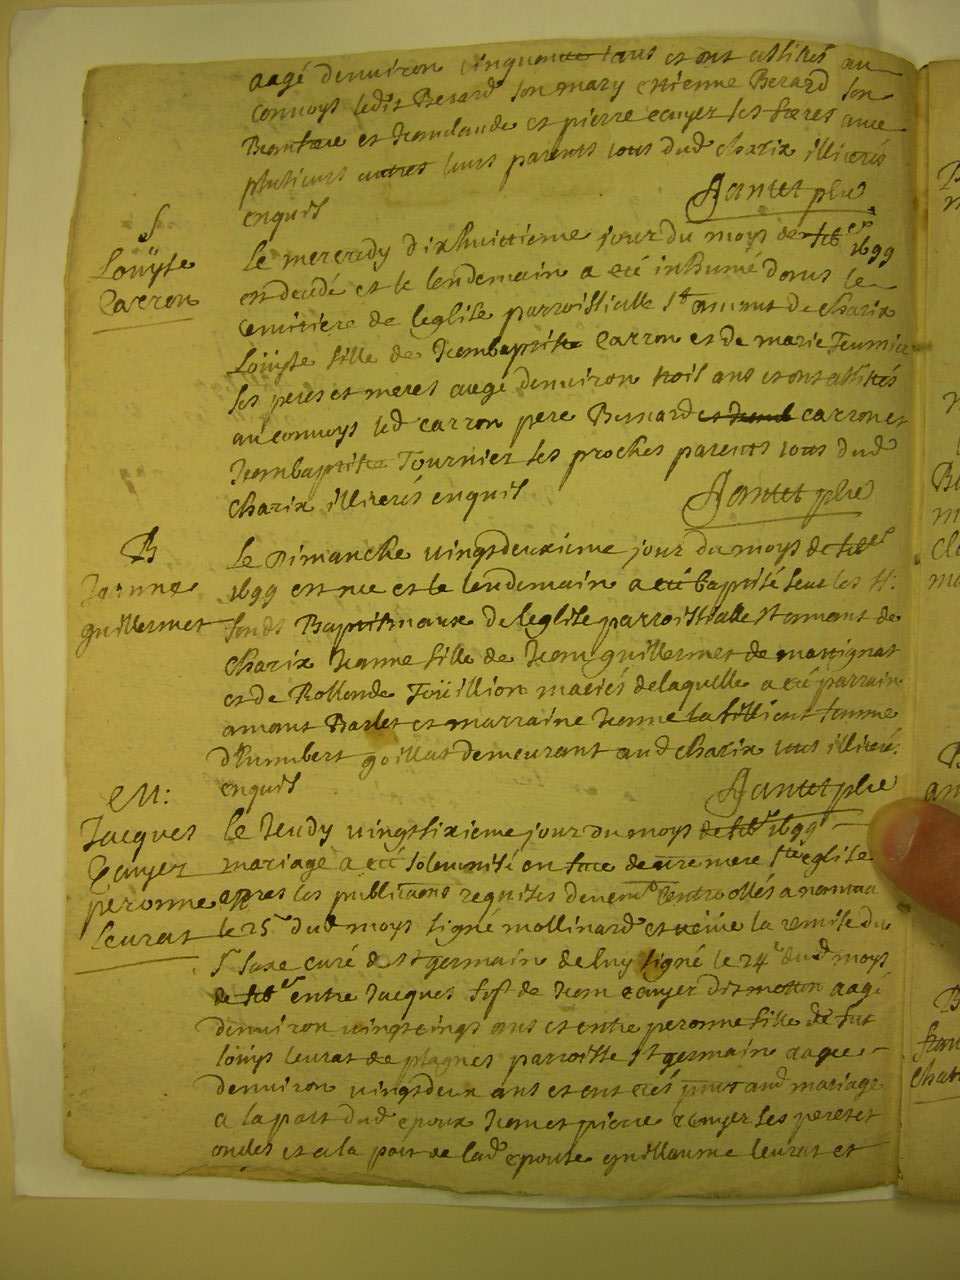 aagé denuiron cinquante ans et ont assistés au
conuoys ledit Berard son mary estienne Berard son
Beaufrere et Jeanclaude et pierre ecuyer ses freres auec
plusieurs autres leurs parents tous dud charix illiterés
enquis
Jantet pbre
S
Louÿse
Carron
Le mercredy dixhuictieme jour du moys de feb.er 1699
est decedé et le lendemain a eté inhumé dans le
cemitiere de leglise parroissialle st amant de charix
Louÿse fille de Jeanbaptiste Carron et de marie Tournier
ses peres et meres aagé denuiron trois ans et ont assistés
au conuoys led carron pere Bernard carron et
Jeanbaptiste Tournier ses proches parents tous dud
charix illiterés enquis
Jantet pbre
B
Jeanne
guillermet
Le Dimanche vingtdeuxieme jour du moys de feb.er
1699 est née et le lendemain a eté baptisé sur les sts
fonds Baptismaux de leglise parroissialle st amant de
charix Jeanne fille de Jean guillermet de martignat
et de Rollande Foüillion mariés de laquelle a eté parrain
amant Barlet et marraine Jeanne femme
d'humbert goillat demeurant aud charix tous illiterés
enquis
Jantet pbre
M:
Jacques
Ecuyer
peronne
Leurat
Le Jeudy vingtsixieme jour du moys de feb.er 1699
mariage a eté solemnisé en face de nre mere ste eglise
apres les publications requises controllés a nantua
le 25e dud moys signé mollinard et veüe la remise du
Sr curé de st germain de Luy signé le 24e dud moys
de feb.er entre Jacques fils de Jean ecuyer dit aagé
denuiron vingtcinq ans et entre peronne fille de fut
Loüys Leurat de plagnes parroisse st germain aagée
denuiron vingtdeux ans et ont etés aud mariage
a la part dud epoux Jean et pierre ecuyer ses pere et
oncles et a la part de lad epouse guillaume Leurat et